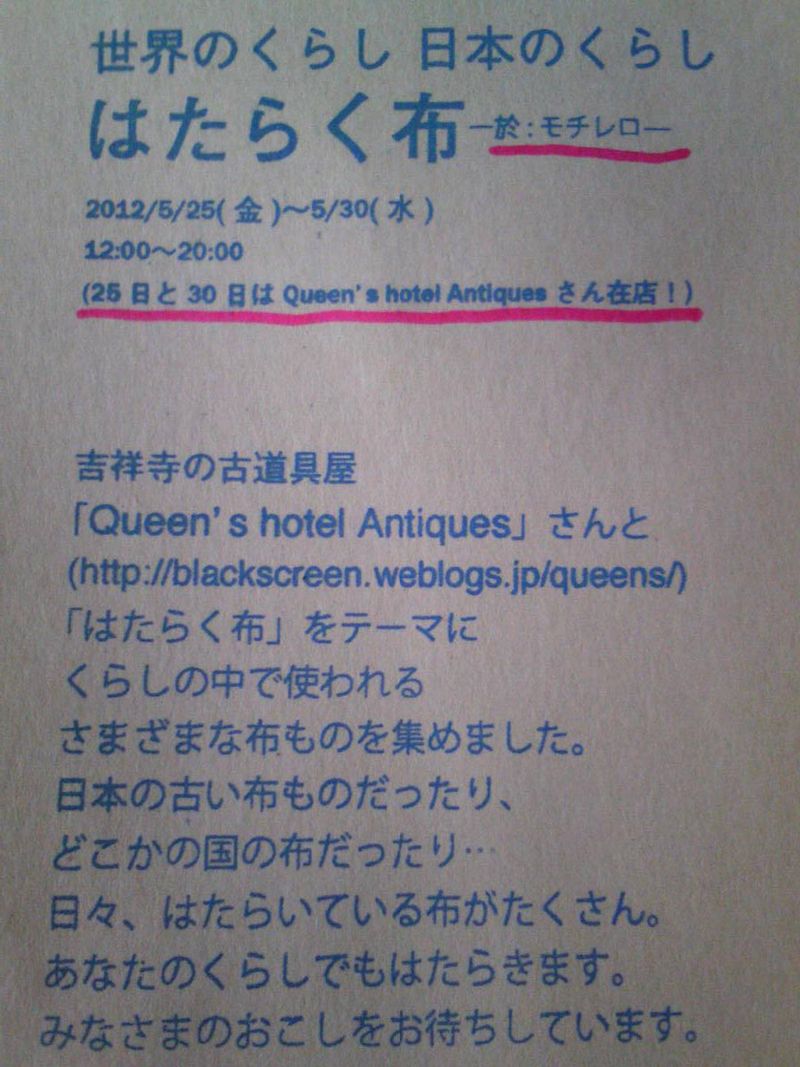 世界のくらし 日本のくらし
はたらく布 ―於：モチレロ―
2012/5/25( 金 )～5/30( 水 )
12:00～20:00
(25 日と 30 日は Queen's hotel Antiques さん在店！)
吉祥寺の古道具屋
「Queen's hotel Antiques」さんと
(http://blackscreen.weblogs.jp/queens/)
「はたらく布」をテーマに
くらしの中で使われる
さまざまな布ものを集めました。
日本の古い布ものだったり、
どこかの国の布だったり…
日々、はたらいている布がたくさん。
あなたのくらしでもはたらきます。
みなさまのおこしをお待ちしています。